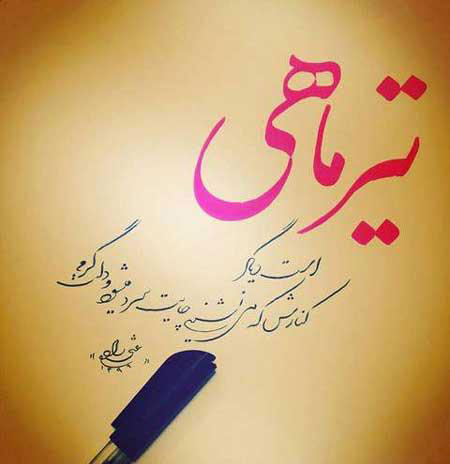 تیرماهی
است دیگر
کنارش که می نشینی چایت سرد میشود و دلت گرم
۱۳۹۶